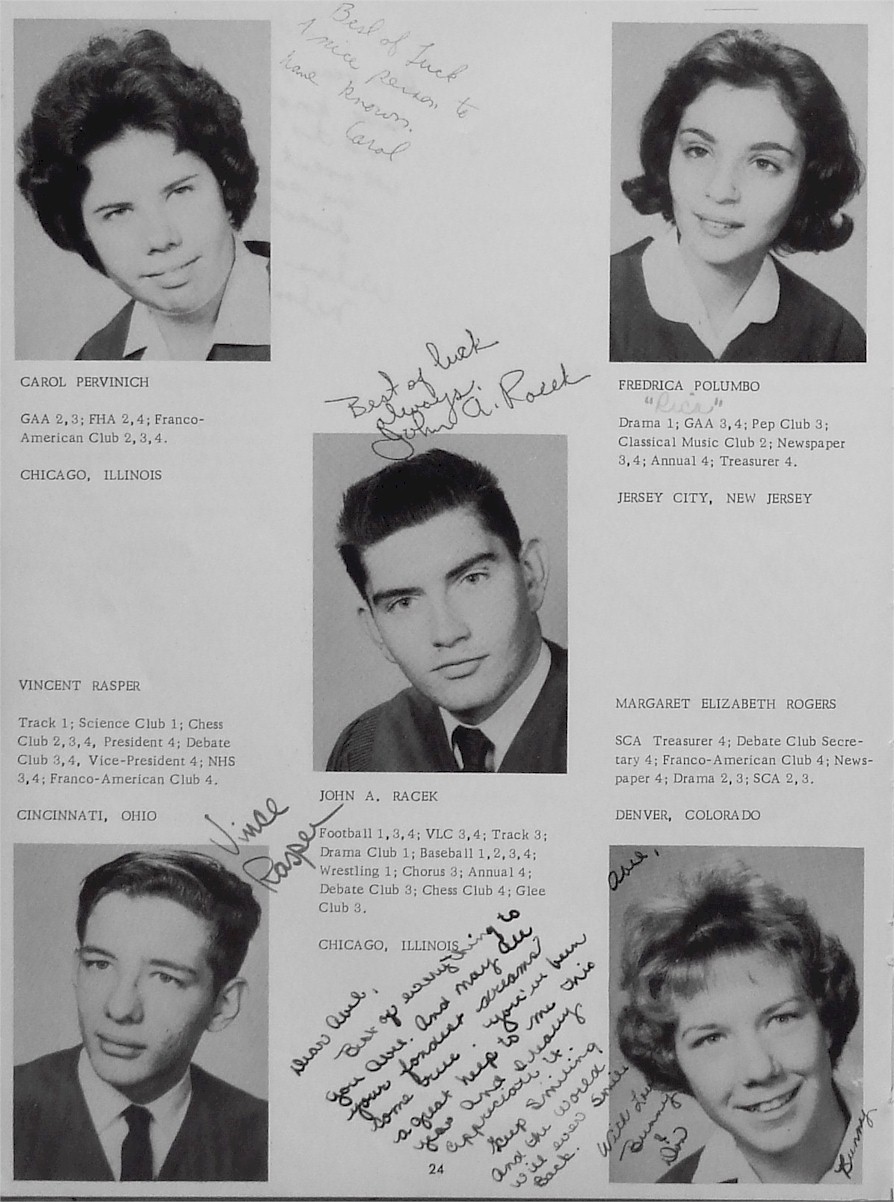 Best of Luck
A nice person to
have known.
Carol
CAROL PERVINICH
GAA 2,3; FHA 2,4; Franco-
American Club 2,3,4.
CHICAGO, ILLINOIS
FREDRICA POLUMBO
"Rica"
Drama 1; GAA 3,4; Pep Club 3;
Classical Music Club 2; Newspaper
3,4; Annual 4; Treasurer 4.
JERSEY CITY, NEW JERSEY
Best of luck
always.
John A. Racek
VINCENT RASPER
Track 1; Science Club 1; Chess
Club 2,3,4, President 4; Debate
Club 3,4, Vice-President 4; NHS
3,4; Franco-American Club 4.
CINCINNATI, OHIO
Vince
Rasper
JOHN A. RACEK
Football 1,3,4; VLC 3,4; Track 3;
Drama Club 1; Baseball 1,2,3,4;
Wrestling 1; Chorus 3; Annual 4;
Debate Club 3; Chess Club 4; Glee
Club 3.
CHICAGO, ILLINOIS
MARGARET ELIZABETH ROGERS
SCA Treasurer 4; Debate Club Secre-
tary 4; Franco-American Club 4; News-
paper 4; Drama 2,3; SCA 2,3.
DENVER, COLORADO
Dear
Best of everything to
you And may all
your fondest dreams
come true. you've been
a great help to me this
year and I really
appreciate it.
Keep Smiling
and the World
will ever smile
Back.
With Love
Bunny
&
Don
Bunny
24